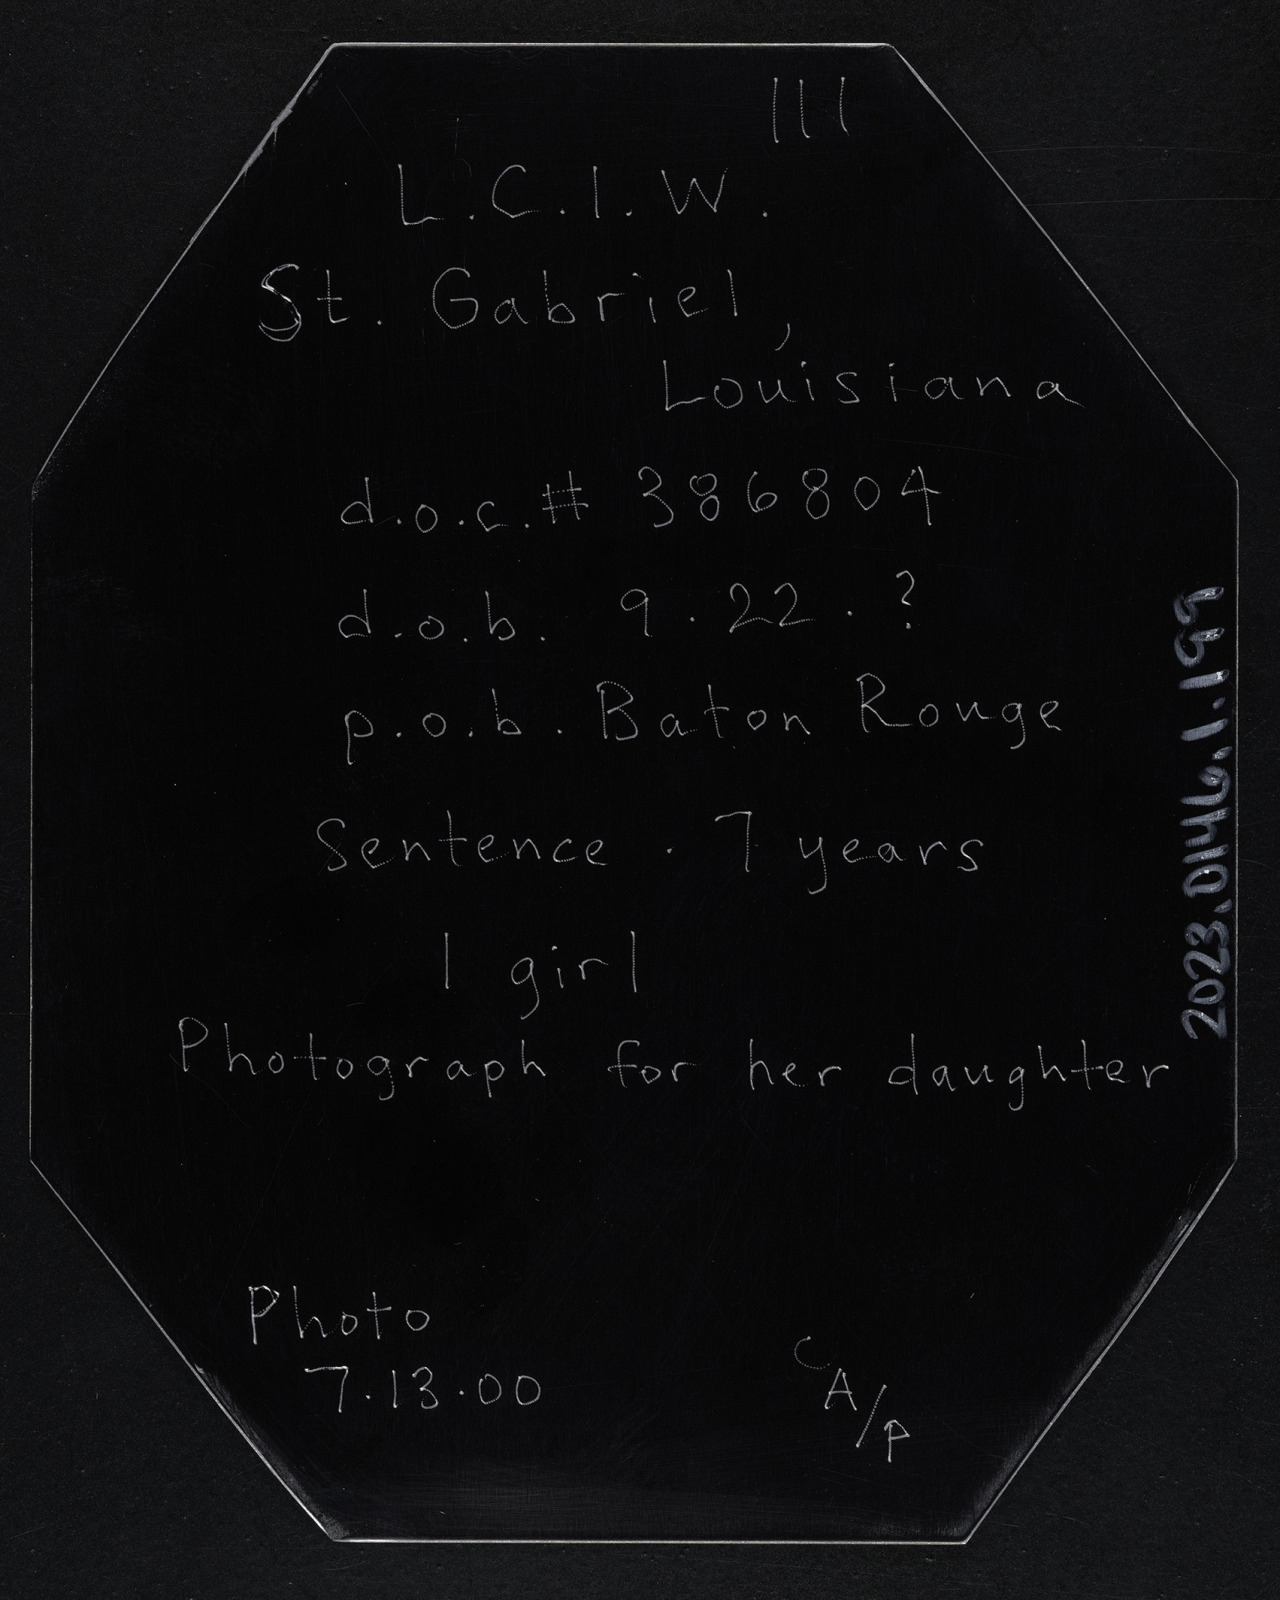 111
L.C.I.W.
St. Gabriel,
Louisiana
d.o.c.# 386804
d.o.b. 9.22.?
p.o.b. Baton Rouge
Sentence . 7 years
1 girl
Photograph for her daughter
Photo
7.13.00
C A/P
2023.0146.1.199